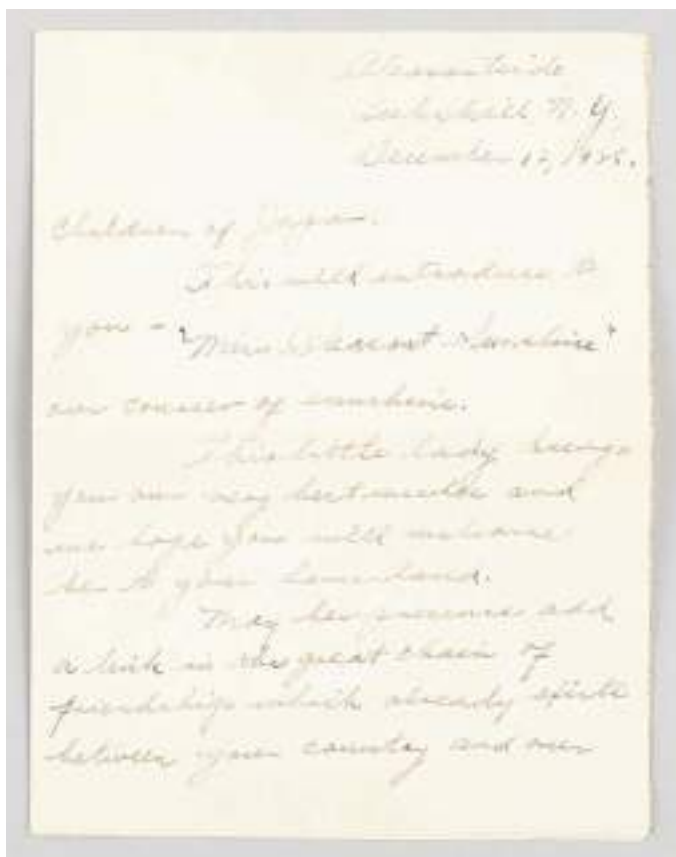 Pleasantside
Peekskill N.Y.
December 12, 1925.
Children of Japan.
This will introduce to
you - "Miss Pleasant Sunshine"
our courier of sunshine.
This little lady brings
you our very best wishes and
we hope you will welcome
her to your homeland.
May her presence add
a link in the great chain of
friendship which already exists
between your country and our